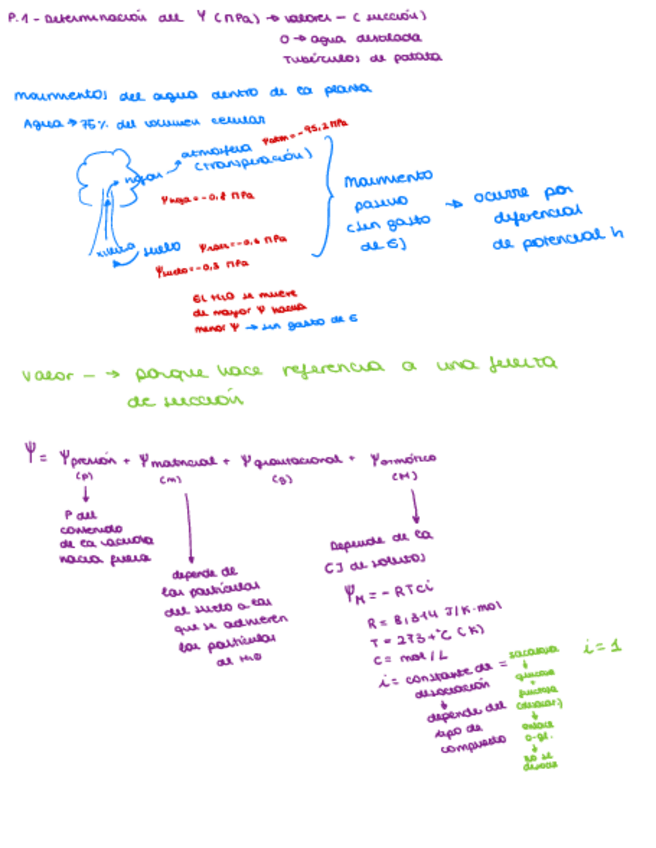 P.1 - Determinación del Ψ (MPa) → valores - (succión)
0 → agua destilada
Tubérculos de patata
Movimientos del agua dentro de la planta
Agua → 75% del volumen celular
Ψatm = -95,2 MPa
atmósfera
(transpiración)
hojas
Ψhoja = -0,8 MPa
xilema
suelo
Ψraíz = -0,6 MPa
Ψsuelo = -0,3 MPa
Movimiento
pasivo
(sin gasto
de E)
→ ocurre por
diferencial
de potencial h
El H2O se mueve
de mayor Ψ hacia
menor Ψ → sin gasto de E
Valor - → porque hace referencia a una fuerza
de succión
Ψ = Ψpresión + Ψmatricial + Ψgravitacional + Ψosmótico
(p) (m) (g) (H)
P del
contenido
de la vacuola
hacia fuera
depende de
las partículas
del suelo a las
que se adhieren
las partículas
de H2O
Depende de la
[] de solutos
ΨH = - RTci
R = 8,314 J/K·mol
T = 273 + ºC (K)
C = mol/L
i = constante de =
disociación
depende del
tipo de
compuesto
sacarosa
glucosa
+
fructosa
(disacár.)
enlace
o-gl.
no se
disocia
i = 1